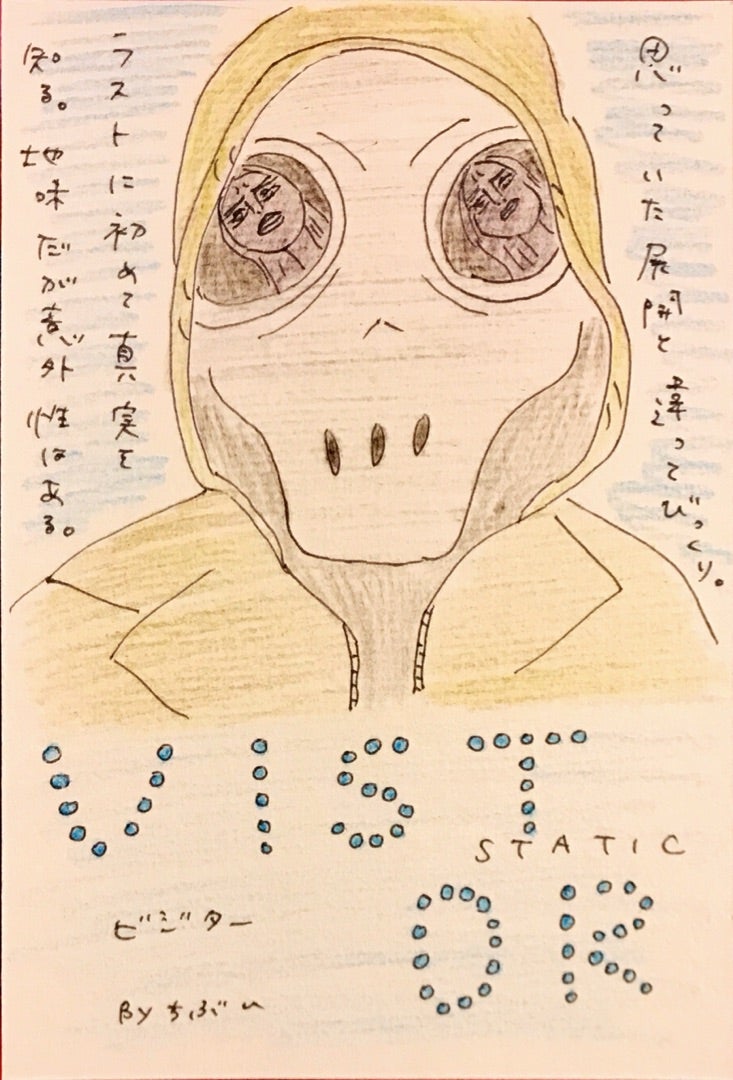 思っていた展開と違ってびっくり。
ラストに初めて真実を
知る。地味だが意外性はある。
VIST
STATIC
OR
ビジター
By ちぷい